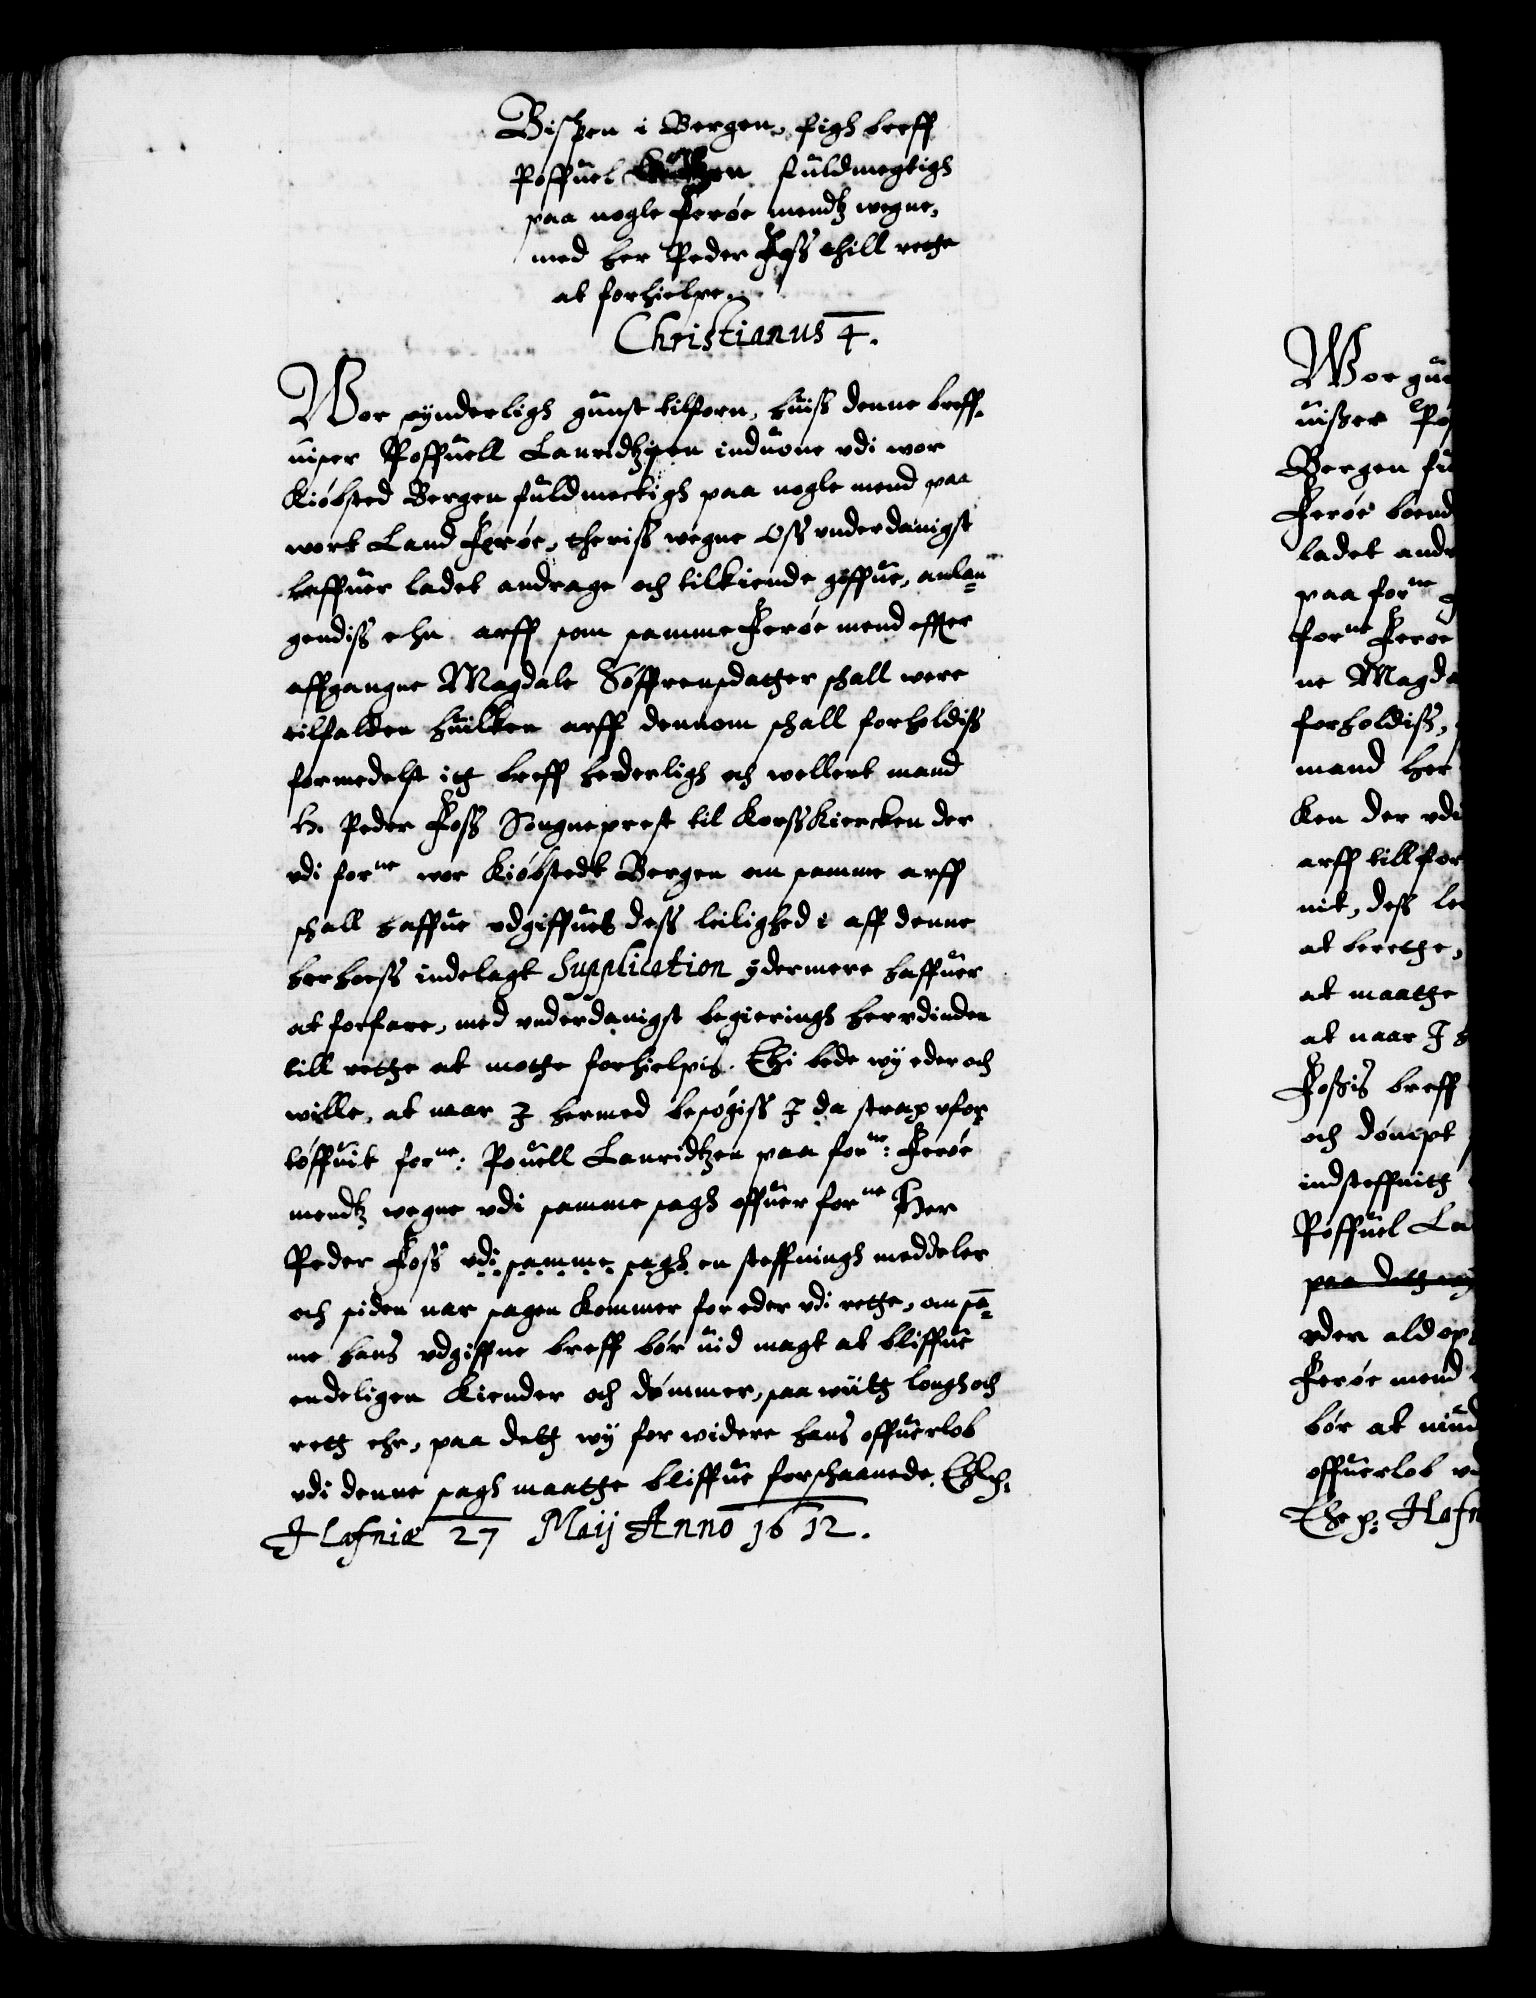 Bispen i Bergen, figh breff
Poffuel fuldmegtigh
paa nogle Ferøe mendtz wegne,
med her Peder Foss thill rette
at forhielpe.
Christianus 4.
Wor synderligh gunst tilforn, huiss denne breff-
uiser Poffuell Lauridtzsen induone vdi wor
Kiøbsted Bergen fuldmectigh paa nogle mend paa
wort Land Ferøe, theriss wegne Oss vnderdanigst
haffuer ladet andrage och tilkiende giffue, anlan=
gendiss ehn arff som samme Ferøe mend effter
affgangne Magdale Søffrensdatter schall were
tilfalden huilken arff dennom schall forholdiss
formedelst itt breff hederligh och wellert mand
H. Peder Foss Sougneprest til Korsskiercken der
vdi forne wor Kiøbstedt Bergen om samme arff
schall haffue vdgiffuet dess leilighed i aff denne
herhoess indelagt Supplication ydermere haffuer
at forfare, med vnderdanigst begieringh herrdinden
till rette at motte forhielpis. Thi bede wy eder och
wille, at naar I hermed besøgiss I da strax vfor
tøffuit forne: Pouell Lauridtzen paa forne: Ferøe
mendtz wegne vdi samme sagh offuer forne Her
Peder Foss vdi samme sagh en steffningh meddeler
och siden nar sagen kommer for eder vdi rette, om sa=
me hans vdgiffne breff bør uid magt at bliffue
endeligen kiender och dømmer, saa wiitt lough och
rett ehr, paa dett wy for widere hans offuerløb
vdi denne sagh maatte bliffue forschaanede. Thesz:
Hafniæ 27 Maij Anno 1612.
Wor gun
uisser Po
Bergen fu
Ferøe boend
ladet andr
paa forne
forne Ferøe
ne Magda
forholdiss,
mand her
ken der vdi
arff tillfor
nit, dess lei
at berette,
at maatte
at naar I h
Fossis breff
och dømpt
indsteffnitt
Poffuel La
paa dett wy
vden ald op
Ferøe mend
bør at niud
offuerløb vd
The sz: Hafn